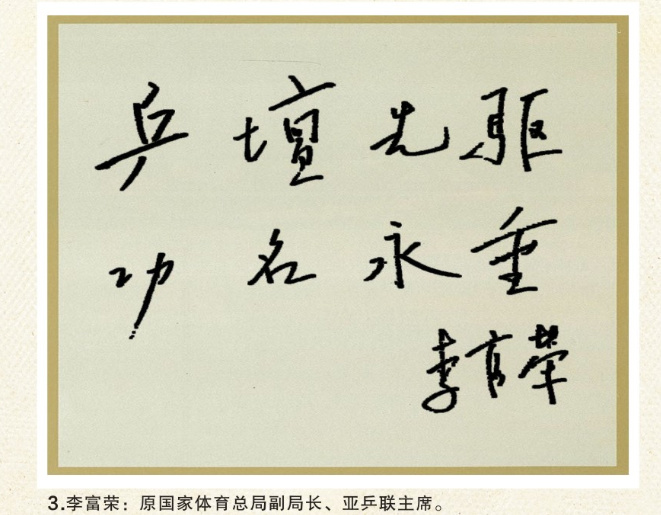 乒壇先驱
功名永重
李富荣
3.李富荣：原国家体育总局副局长、亚乒联主席。